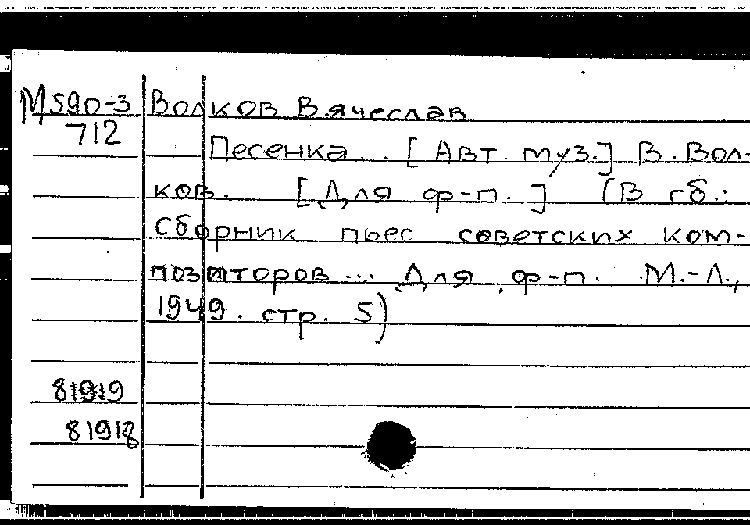 М590-3 Волков Вячеслав
712
Песенка... [Авт. муз.] В. Вол-
ков. [Для ф-п.] (В сб.:
Сборник пьес советских ком-
позиторов... Для ф-п. М.-Л.,
1949. стр. 5)
81919
81918